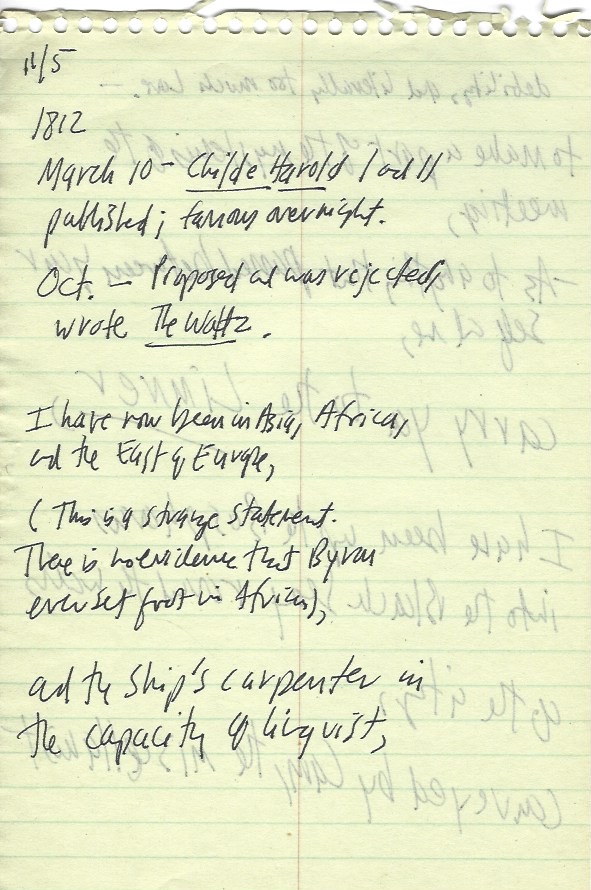 11/5
1812
March 10 - Childe Harold I and II
published; famous overnight.
Oct. - Proposed and was rejected,
wrote The Waltz.
I have now been in Asia, Africa,
and the East of Europe,
(This is a strange statement.
There is no evidence that Byron
ever set foot in Africa),
and the ship's carpenter in
the capacity of linguist,